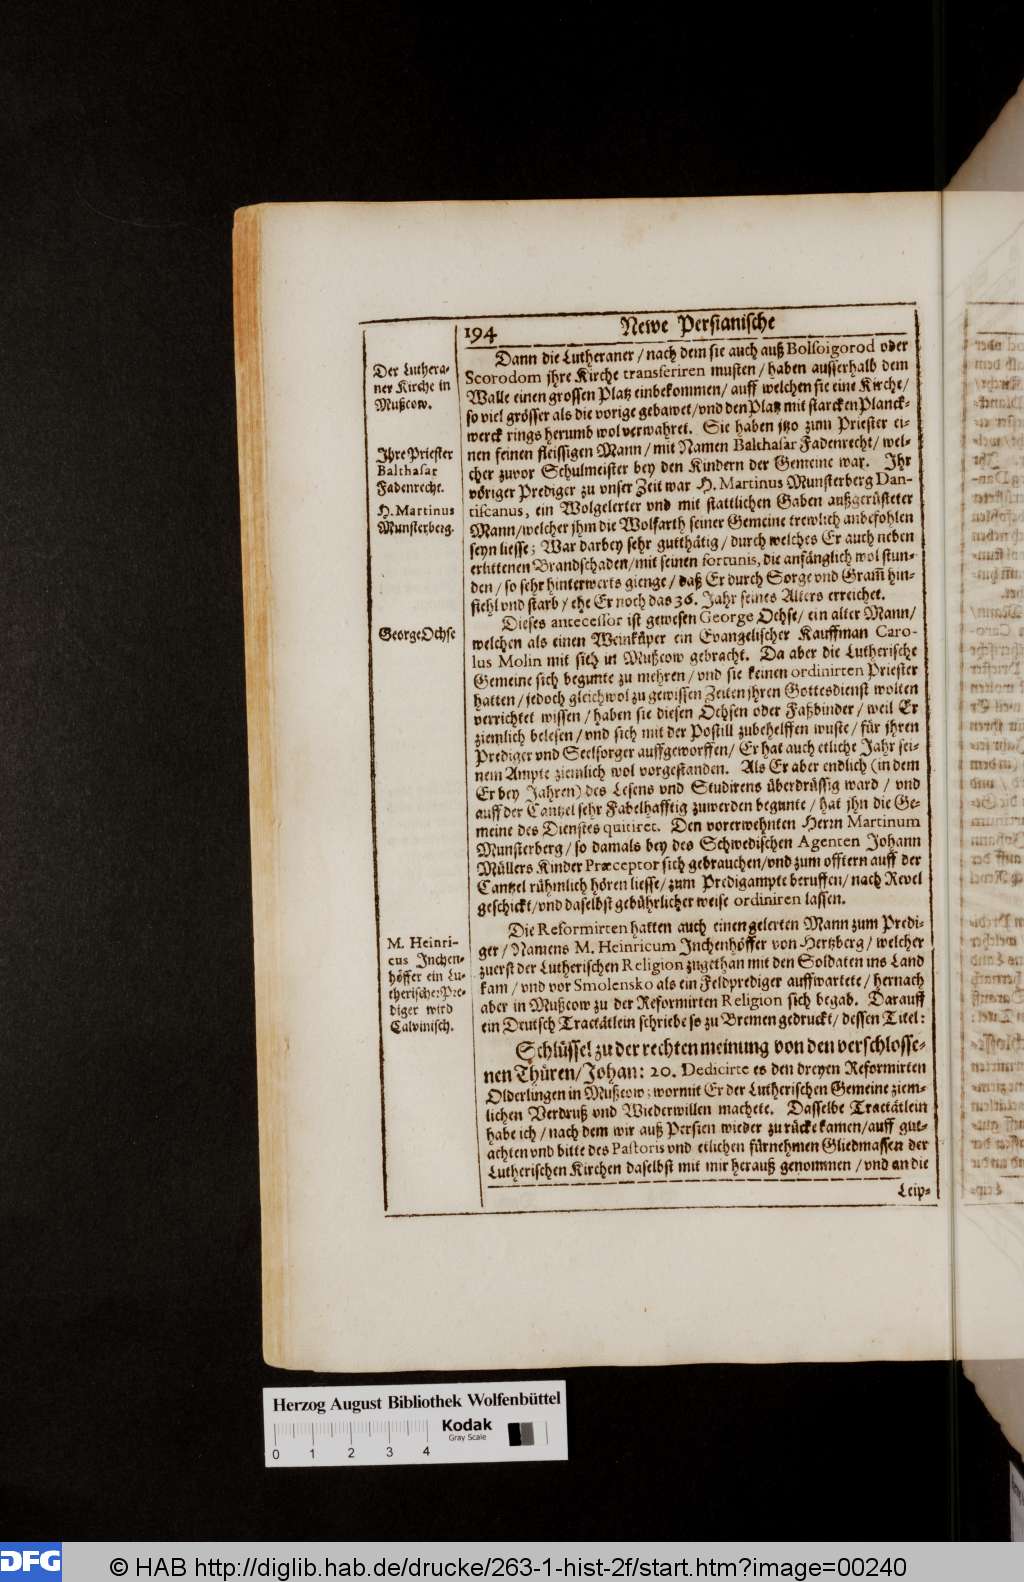 194 Newe Persianische
Der Luthera-
ner Kirche in
Mußcow.
Ihre Priester
Balthasar
Fadenrecht.
H. Martinus
Munsterberg.
George Ochse
M. Heinri-
cus Inchen-
höffer ein Lu-
therischer Pre-
diger wird
Calvinisch.
Dann die Lutheraner / nach dem sie auch auß Bolsoigorod oder
Scorodom ihre Kirche transferiren musten / haben ausserhalb dem
Walle einen grossen Platz einbekommen / auff welchen sie eine Kirche /
so viel grösser als die vorige gebawet / vnd den Platz mit starcken Planck-
werck rings herumb wol verwahret. Sie haben jtzo zum Priester ei-
nen feinen fleissigen Mann / mit Namen Balthasar Fadenrecht / wel-
cher zuvor Schulmeister bey den Kindern der Gemeine war. Ihr
vöriger Prediger zu vnser Zeit war H. Martinus Munsterberg Dan-
tiscanus, ein Wolgelerter vnd mit stattlichen Gaben außgerüsteter
Mann / welcher jhm die Wolfarth seiner Gemeine trewlich anbefohlen
seyn liesse; War darbey sehr gutthätig / durch welches Er auch neben
erlittenen Brandschaden / mit seinen fortunis, die anfänglich wol stun-
den / so sehr hinterwerts gienge / daß Er durch Sorge vnd Gram̄ hin-
fiehl vnd starb / ehe Er noch das 36. Jahr seines Alters erreichet.
Dieses antecessor ist gewesen George Ochse / ein alter Mann /
welchen als einen Weinküper ein Evangelischer Kauffman Caro-
lus Molin mit sich in Mußcow gebracht. Da aber die Lutherische
Gemeine sich begunte zu mehren / vnd sie keinen ordinirten Priester
hatten / jedoch gleichwol zu gewissen Zeiten jhren Gottesdienst wolten
verrichtet wissen / haben sie diesen Ochsen oder Faßbinder / weil Er
ziemlich belesen / vnd sich mit der Postill zubehelffen wuste / für jhren
Prediger vnd Seelsorger auffgeworffen / Er hat auch etliche Jahr sei-
nem Ampte ziemlich wol vorgestanden. Als Er aber endlich (in dem
Er bey Jahren) des Lesens vnd Studirens überdrüssig ward / vnd
auff der Cantzel sehr Fabelhafftig zuwerden begunte / hat jhn die Ge-
meine des Dienstes quitiret. Den vorerwehnten Herrn Martinum
Munsterberg / so damals bey des Schwedischen Agenten Johann
Müllers Kinder Præceptor sich gebrauchen / vnd zum offtern auff der
Cantzel rühmlich hören liesse / zum Predigampte beruffen / nach Revel
geschickt / vnd daselbst gebührlicher weise ordiniren lassen.
Die Reformirten hatten auch einen gelerten Mann zum Predi-
ger / Namens M. Heinricum Inchenhöffer von Hertzberg / welcher
zuerst der Lutherischen Religion zugethan mit den Soldaten ins Land
kam / vnd vor Smolensko als ein Feldprediger auffwartete / hernach
aber in Mußcow zu der Reformirten Religion sich begab. Darauff
ein Deutsch Tractätlein schriebe so zu Bremen gedruckt / dessen Titel:
Schlüssel zu der rechten meinung von den verschlosse-
nen Thüren / Johan: 20. Dedicirte es den dreyen Reformirten
Olderlingen in Mußcow; wormit Er der Lutherischen Gemeine ziem-
lichen Verdruß vnd Wiederwillen machete. Dasselbe Tractätlein
habe ich / nach dem wir auß Persien wieder zu rücke kamen / auff gut-
achten vnd bitte des Pastoris vnd etlichen fürnehmen Gliedmassen der
Lutherischen Kirchen daselbst mit mir herauß genommen / vnd an die
Leip-
Herzog August Bibliothek Wolfenbüttel
Kodak
Gray Scale
0 1 2 3 4
DFG © HAB http://diglib.hab.de/drucke/263-1-hist-2f/start.htm?image=00240